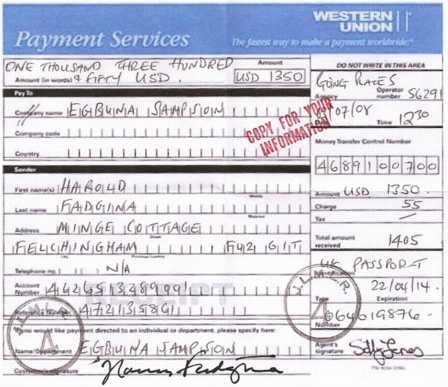 WESTERN
UNION
Payment Services
The fastest way to make a payment worldwide
ONE THOUSAND THREE HUNDRED
Amount
Amount (in words) & FIFTY USD.
USD 1350
DO NOT WRITE IN THIS AREA
GOING PLACES
Agency
Operator
number S6291
/07/08
Time 1230
Pay To
Company name EGBUINA SAMPSION
Company code
Country
COPY FOR YOUR
INFORMATION
Money Transfer Control Number
4689100700
Sender
First name(s) HAROLD
Last name FADGINA
Address MINGE COTTAGE
FELCHINGHAM FU2 GIT
Telephone no. N/A
Account
Number
Reference Number
Amount USD 1350.
Charge 55
Tax
Total amount
received 1405
UK PASSPORT
Identification
22/04/14
Type
Expiration
Number
If you would like payment directed to an individual or department, please specify here:
Name/Department EGBUINA SAMPSION
Customer's signature
Agent's
signature
RECEIPT
J.L.H.R.
4
4